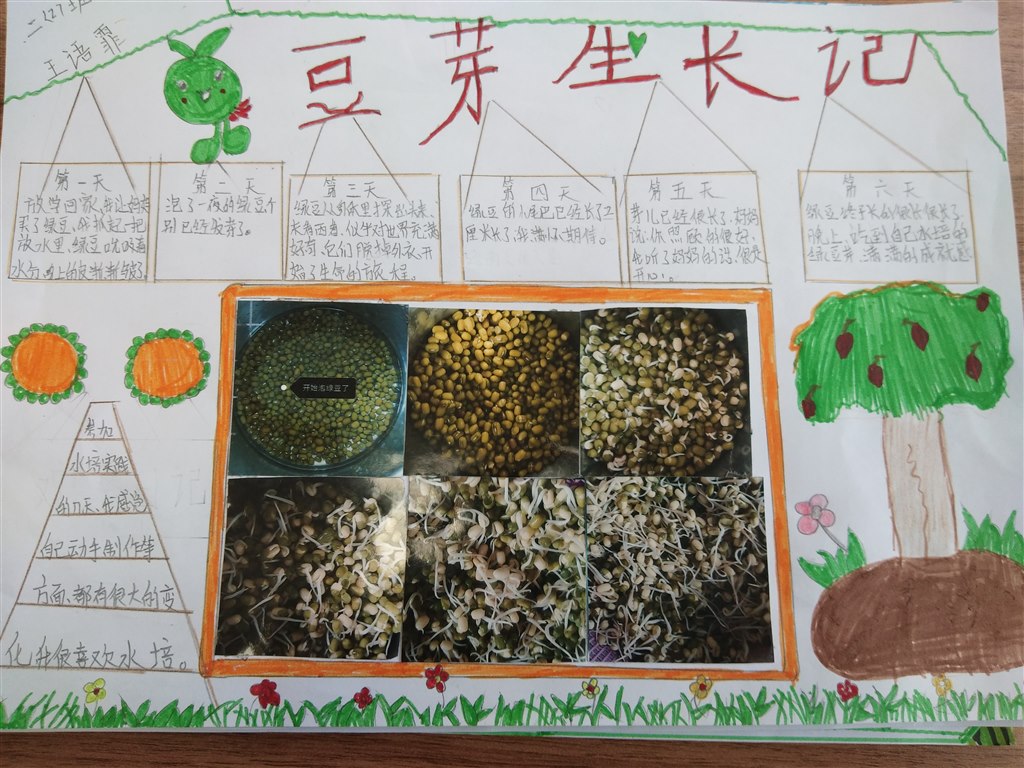 二(7)班
王语霏
豆芽生长记
第一天
放学回家,我让妈妈
买了绿豆,我抓起一把
放水里,绿豆咣咬着
水勾,身上的皮渐渐皱了。
第二天
泡了一夜的绿豆个
别已经发芽了。
第三天
绿豆从身体里探出头来,
东看西看,似乎对世界充满
好奇,它们脱掉外衣,开
始了生命的旅程。
第四天
绿豆的小尾巴已经长了2
厘米长了,我满怀期待。
第五天
芽儿已经很长了,妈妈
说:你照顾的很好,
我听了妈妈的话,很是
开心!。
第六天
绿豆终于长的很长很长了,
晚上,吃到自己水培的
绿豆芽,满满的成就感
开始泡绿豆了
参加
水培实践
的几天,我感觉
自己动手制作等
方面,都有很大的变
化我很喜欢水培。